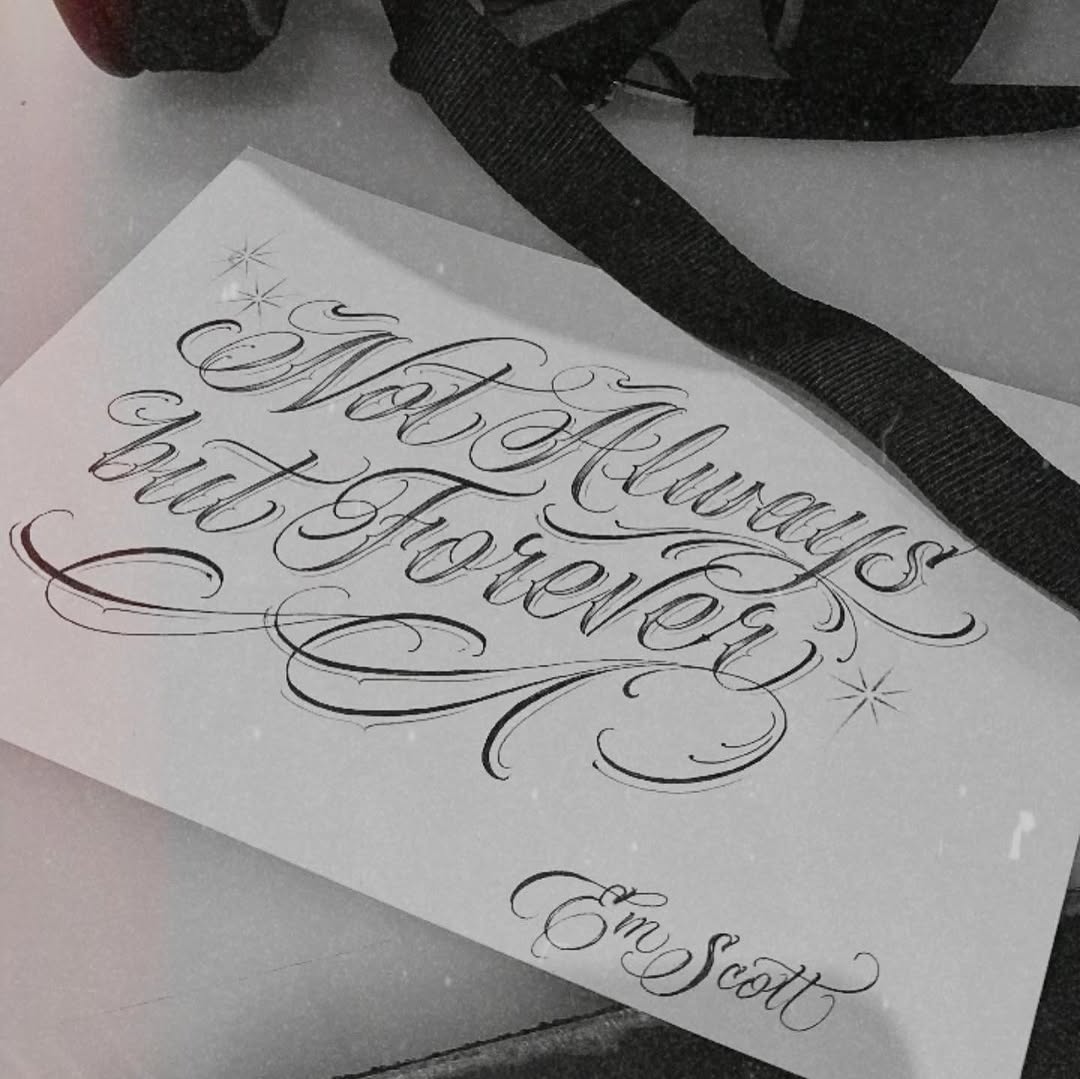 Not Always
but Forever
Em Scott